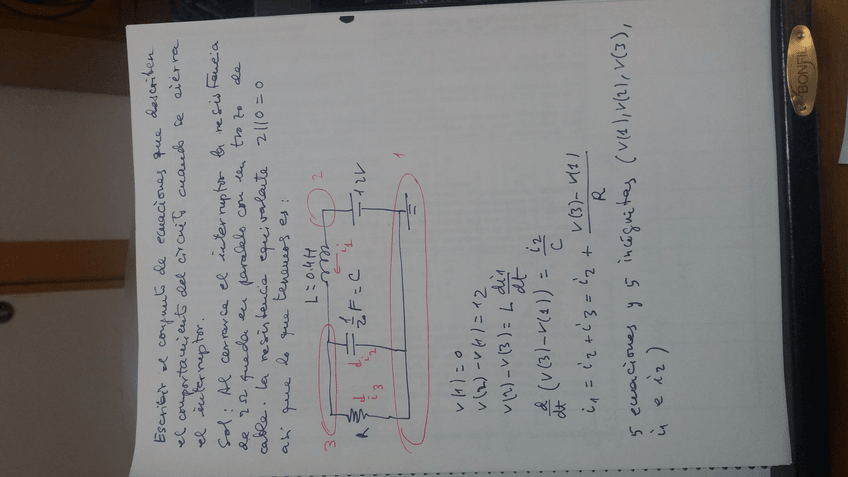 Escribir el conjunto de ecuaciones que describen
el comportamiento del circuito cuando se cierra
el interruptor.
Sol: Al cerrarse el interruptor la resistencia
de 2Ω queda en paralelo con un trozo de
cable. La resistencia equivalente 2||0=0
así que lo que tenemos es:
L=0.4H
3
2
1
R
i3
i2
i1
1/20 F = C
12V
V(1)=0
V(2)-V(1)=12
V(2)-V(3)=L di1/dt
d/dt (V(3)-V(1)) = i2/C
i1 = i2+i3 = i2 + V(3)-V(1)/R
5 ecuaciones y 5 incógnitas (V(1), V(2), V(3),
i1 e i2)
BONFIL